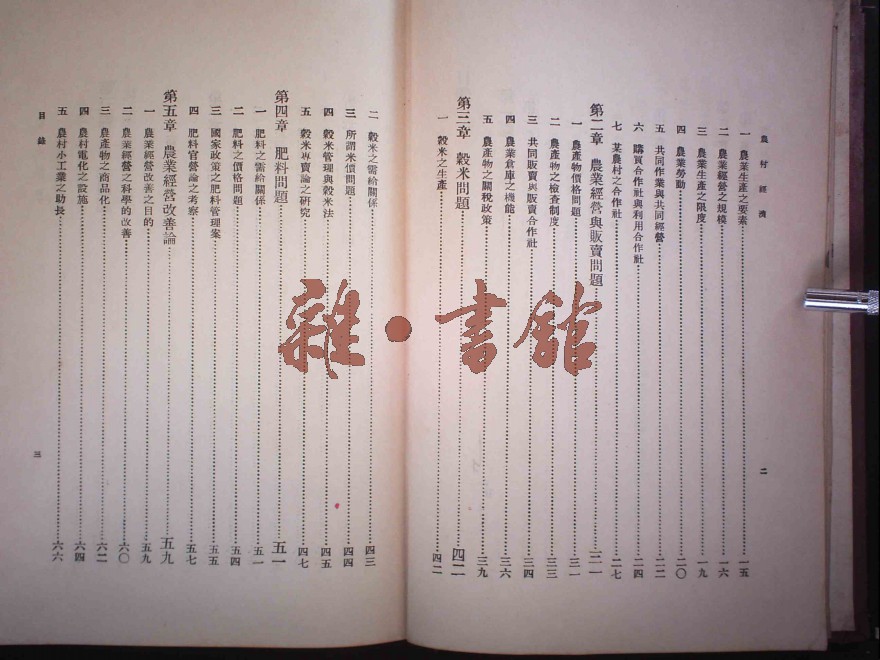 農村經濟
二
一 農業生產之要素……一五
二 農業經營之規模……一六
三 農業生產之限度……一九
四 農業勞動……二〇
五 共同作業與共同經營……二二
六 購買合作社與利用合作社……二四
七 某農村之合作社……二七
第二章 農業經營與販賣問題……三一
一 農產物價格問題……三一
二 農產物之檢查制度……三三
三 共同販賣與販賣合作社……三四
四 農業倉庫之機能……三六
五 農產物之關稅政策……三九
第三章 穀米問題……四二
一 穀米之生產……四二
二 穀米之需給關係……四三
三 所謂米價問題……四四
四 穀米管理與穀米法……四五
五 穀米專賣論之研究……四七
第四章 肥料問題……五一
一 肥料之需給關係……五一
二 肥料之價格問題……五四
三 國家政策之肥料管理案……五五
四 肥料官營論之考察……五七
第五章 農業經營改善論……五九
一 農業經營改善之目的……五九
二 農業經營之科學的改善……六〇
三 農產物之商品化……六二
四 農村電化之設施……六四
五 農村小工業之助長……六六
目錄
三
雜·書館